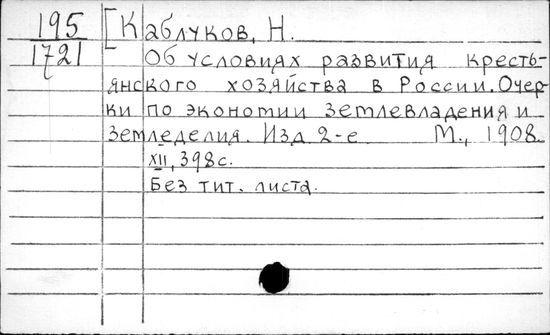 195 [Каблуков, Н.
1721 Об условиях развития кресть-
янского хозяйства в России. Очер-
ки по экономии землевладения и
земледелия. Изд. 2-е М., 1908.
XII, 398с.
Без тит. листа.